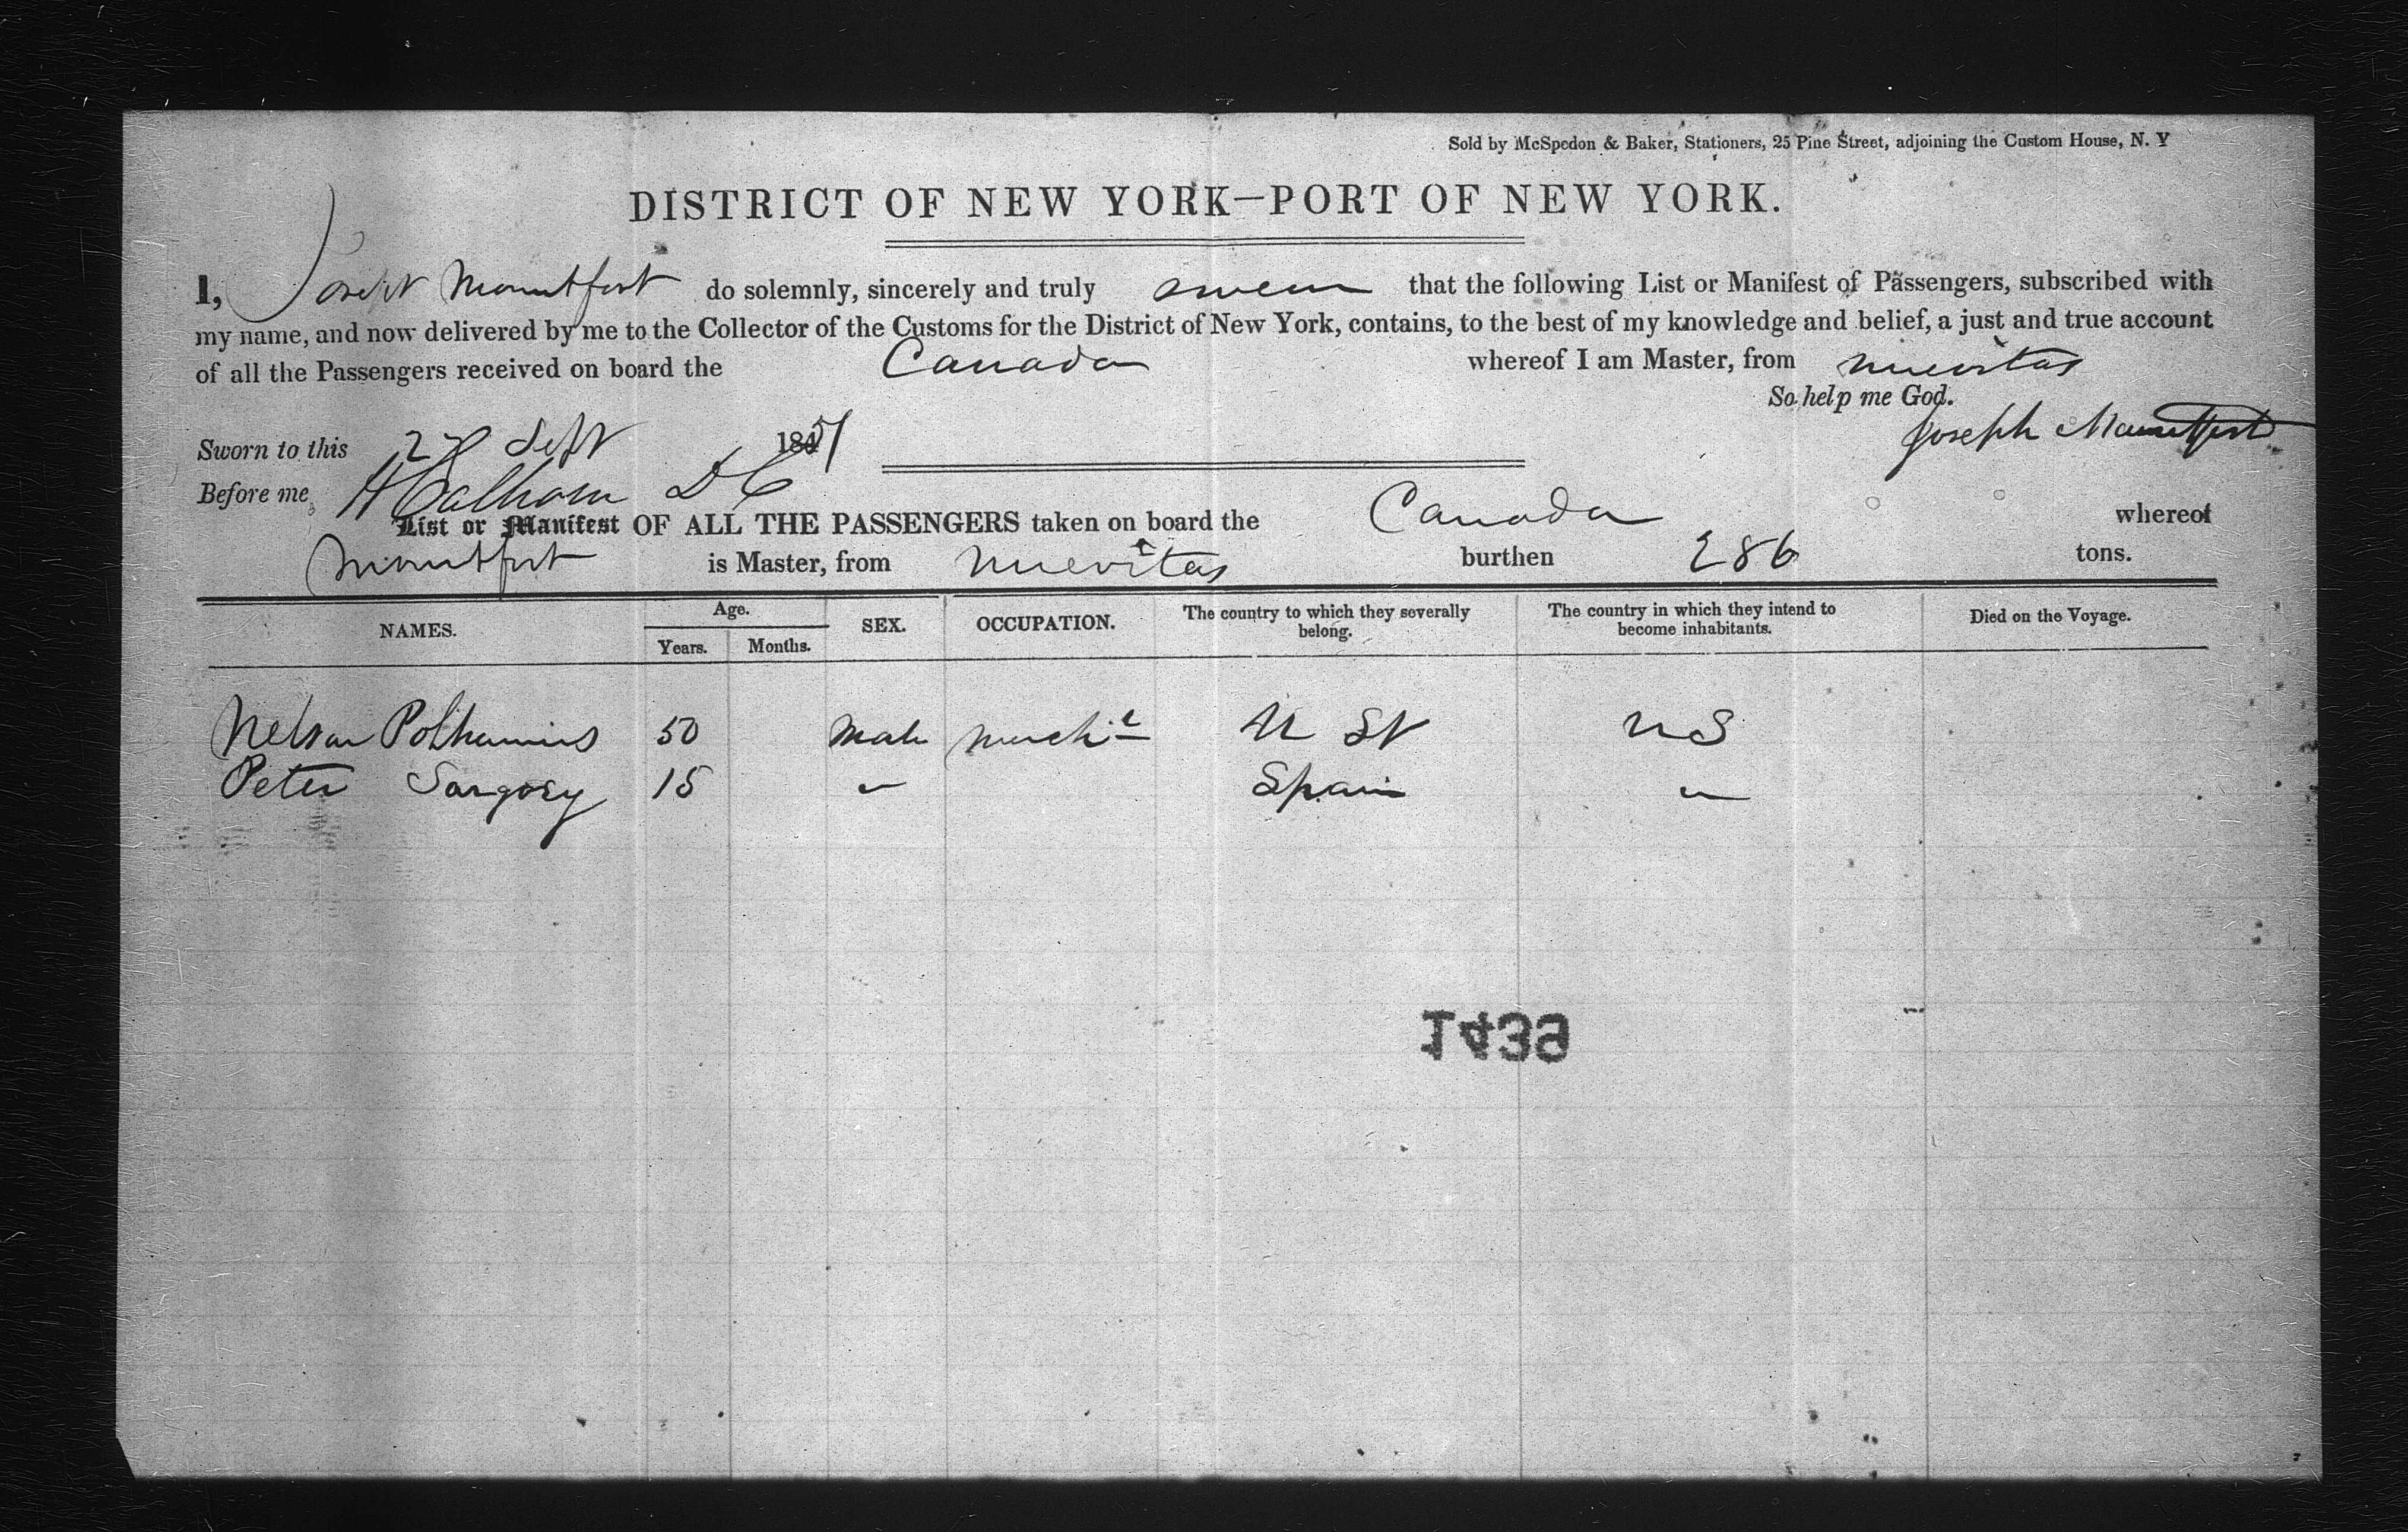 Sold by McSpedon & Baker, Stationers, 25 Pine Street, adjoining the Custom House, N. Y
DISTRICT OF NEW YORK—PORT OF NEW YORK.
I, Joseph Mountfort do solemnly, sincerely and truly swear that the following List or Manifest of Passengers, subscribed with
my name, and now delivered by me to the Collector of the Customs for the District of New York, contains, to the best of my knowledge and belief, a just and true account
of all the Passengers received on board the Canada whereof I am Master, from Nuevitas
So help me God.
Sworn to this Sept 1851 Joseph Mountfort
Before me H Calhoun DC
List or Manifest OF ALL THE PASSENGERS taken on board the Canada whereof
Mountfort is Master, from Nuevitas burthen 286 tons.
NAMES. Age. Years. Months. SEX. OCCUPATION. The country to which they severally belong. The country in which they intend to become inhabitants. Died on the Voyage.
Nelson Polhamius 50 Male Mercht U St US
Peter 15 " Spain "
1439